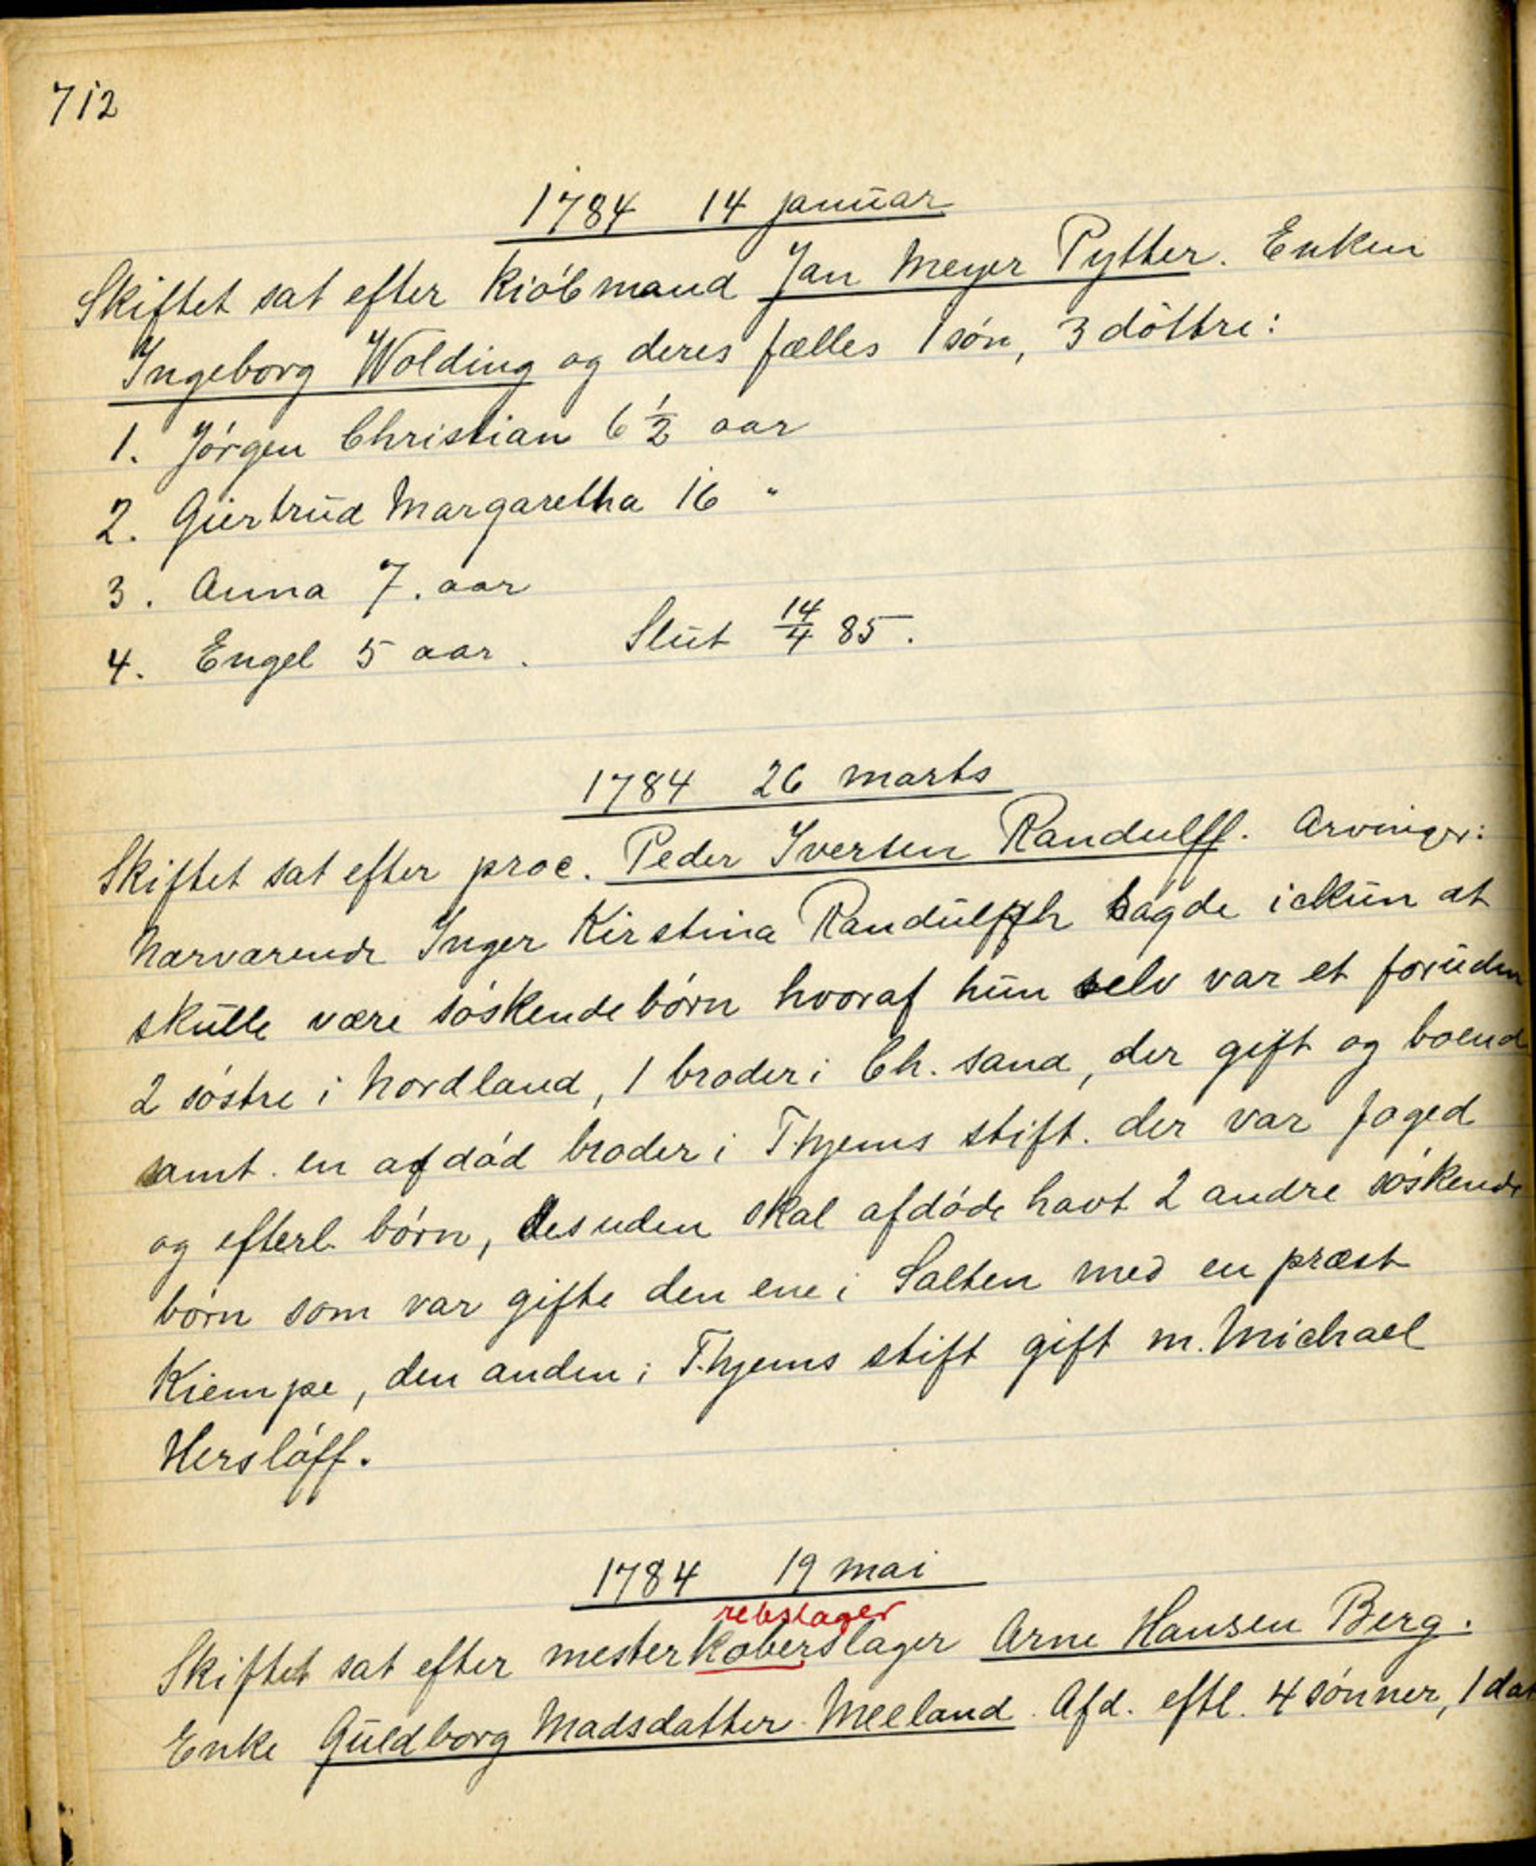 712
1784 14 januar
Skiftet sat efter kiöbmand Jan Meyer Pytter. Enken
Ingeborg Wolding og deres fælles 1 sön, 3 döttre:
1. Jörgen Christian 6 1/2 aar
2. Giertrud Margaretha 16 "
3. Anna 7. aar
4. Engel 5 aar. Slut 14/4 85.
1784 26 marts
Skiftet sat efter proc. Peder Iversen Randulff. Arvinger:
Nærværende Inger Kirstina Randulph sagde ickun at
skulle være söskendebörn hvoraf hun selv var et foruden
2 söstre i Nordland, 1 broder i Ch. sand, der gift og boend
samt. en afdöd broder i Thjems stift. der var foged
og efterl. börn, desuden skal afdöde havt 2 andre söskende
börn som var gifte den ene i Salten med en præst
Kiempe, den anden i Thjems stift gift m. Michael
Herslöff.
1784 19 mai
rebslager
Skiftet sat efter mester Koberslager Arne Hansen Berg.
Enke Guldborg Madsdatter Meeland. Afd. eftl. 4 sönner, 1 dat